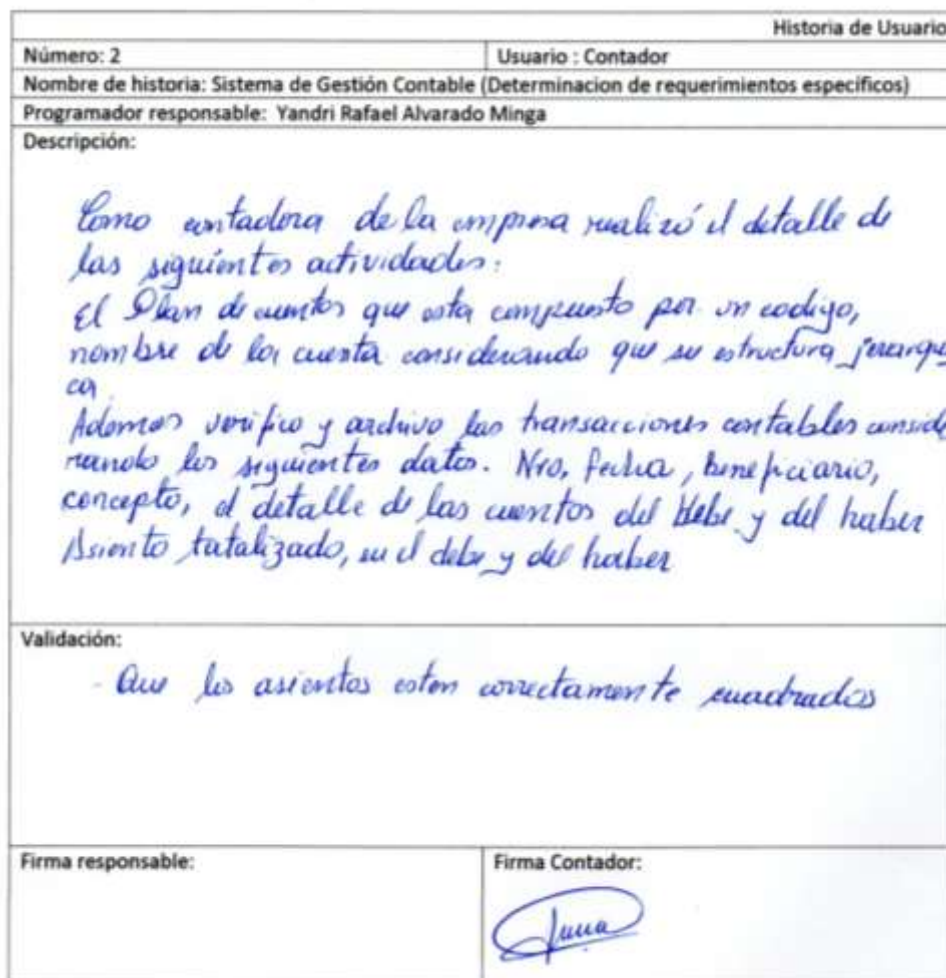 Historia de Usuario
Número: 2 Usuario : Contador
Nombre de historia: Sistema de Gestión Contable (Determinacion de requerimientos específicos)
Programador responsable: Yandri Rafael Alvarado Minga
Descripción:
Como contadora de la empresa realizó el detalle de
las siguientes actividades:
El Plan de cuentas que esta compuesto por un codigo,
nombre de la cuenta considerando que su estructura jerarqui
ca
Ademas verifico y archivo las transacciones contables conside
rando los siguientes datos. Nro, fecha, beneficiario,
concepto, el detalle de las cuentas del debe y del haber
Asiento tatalizado, en el debe y del haber
Validación:
- Que los asientos esten correctamente cuadrados
Firma responsable: Firma Contador: